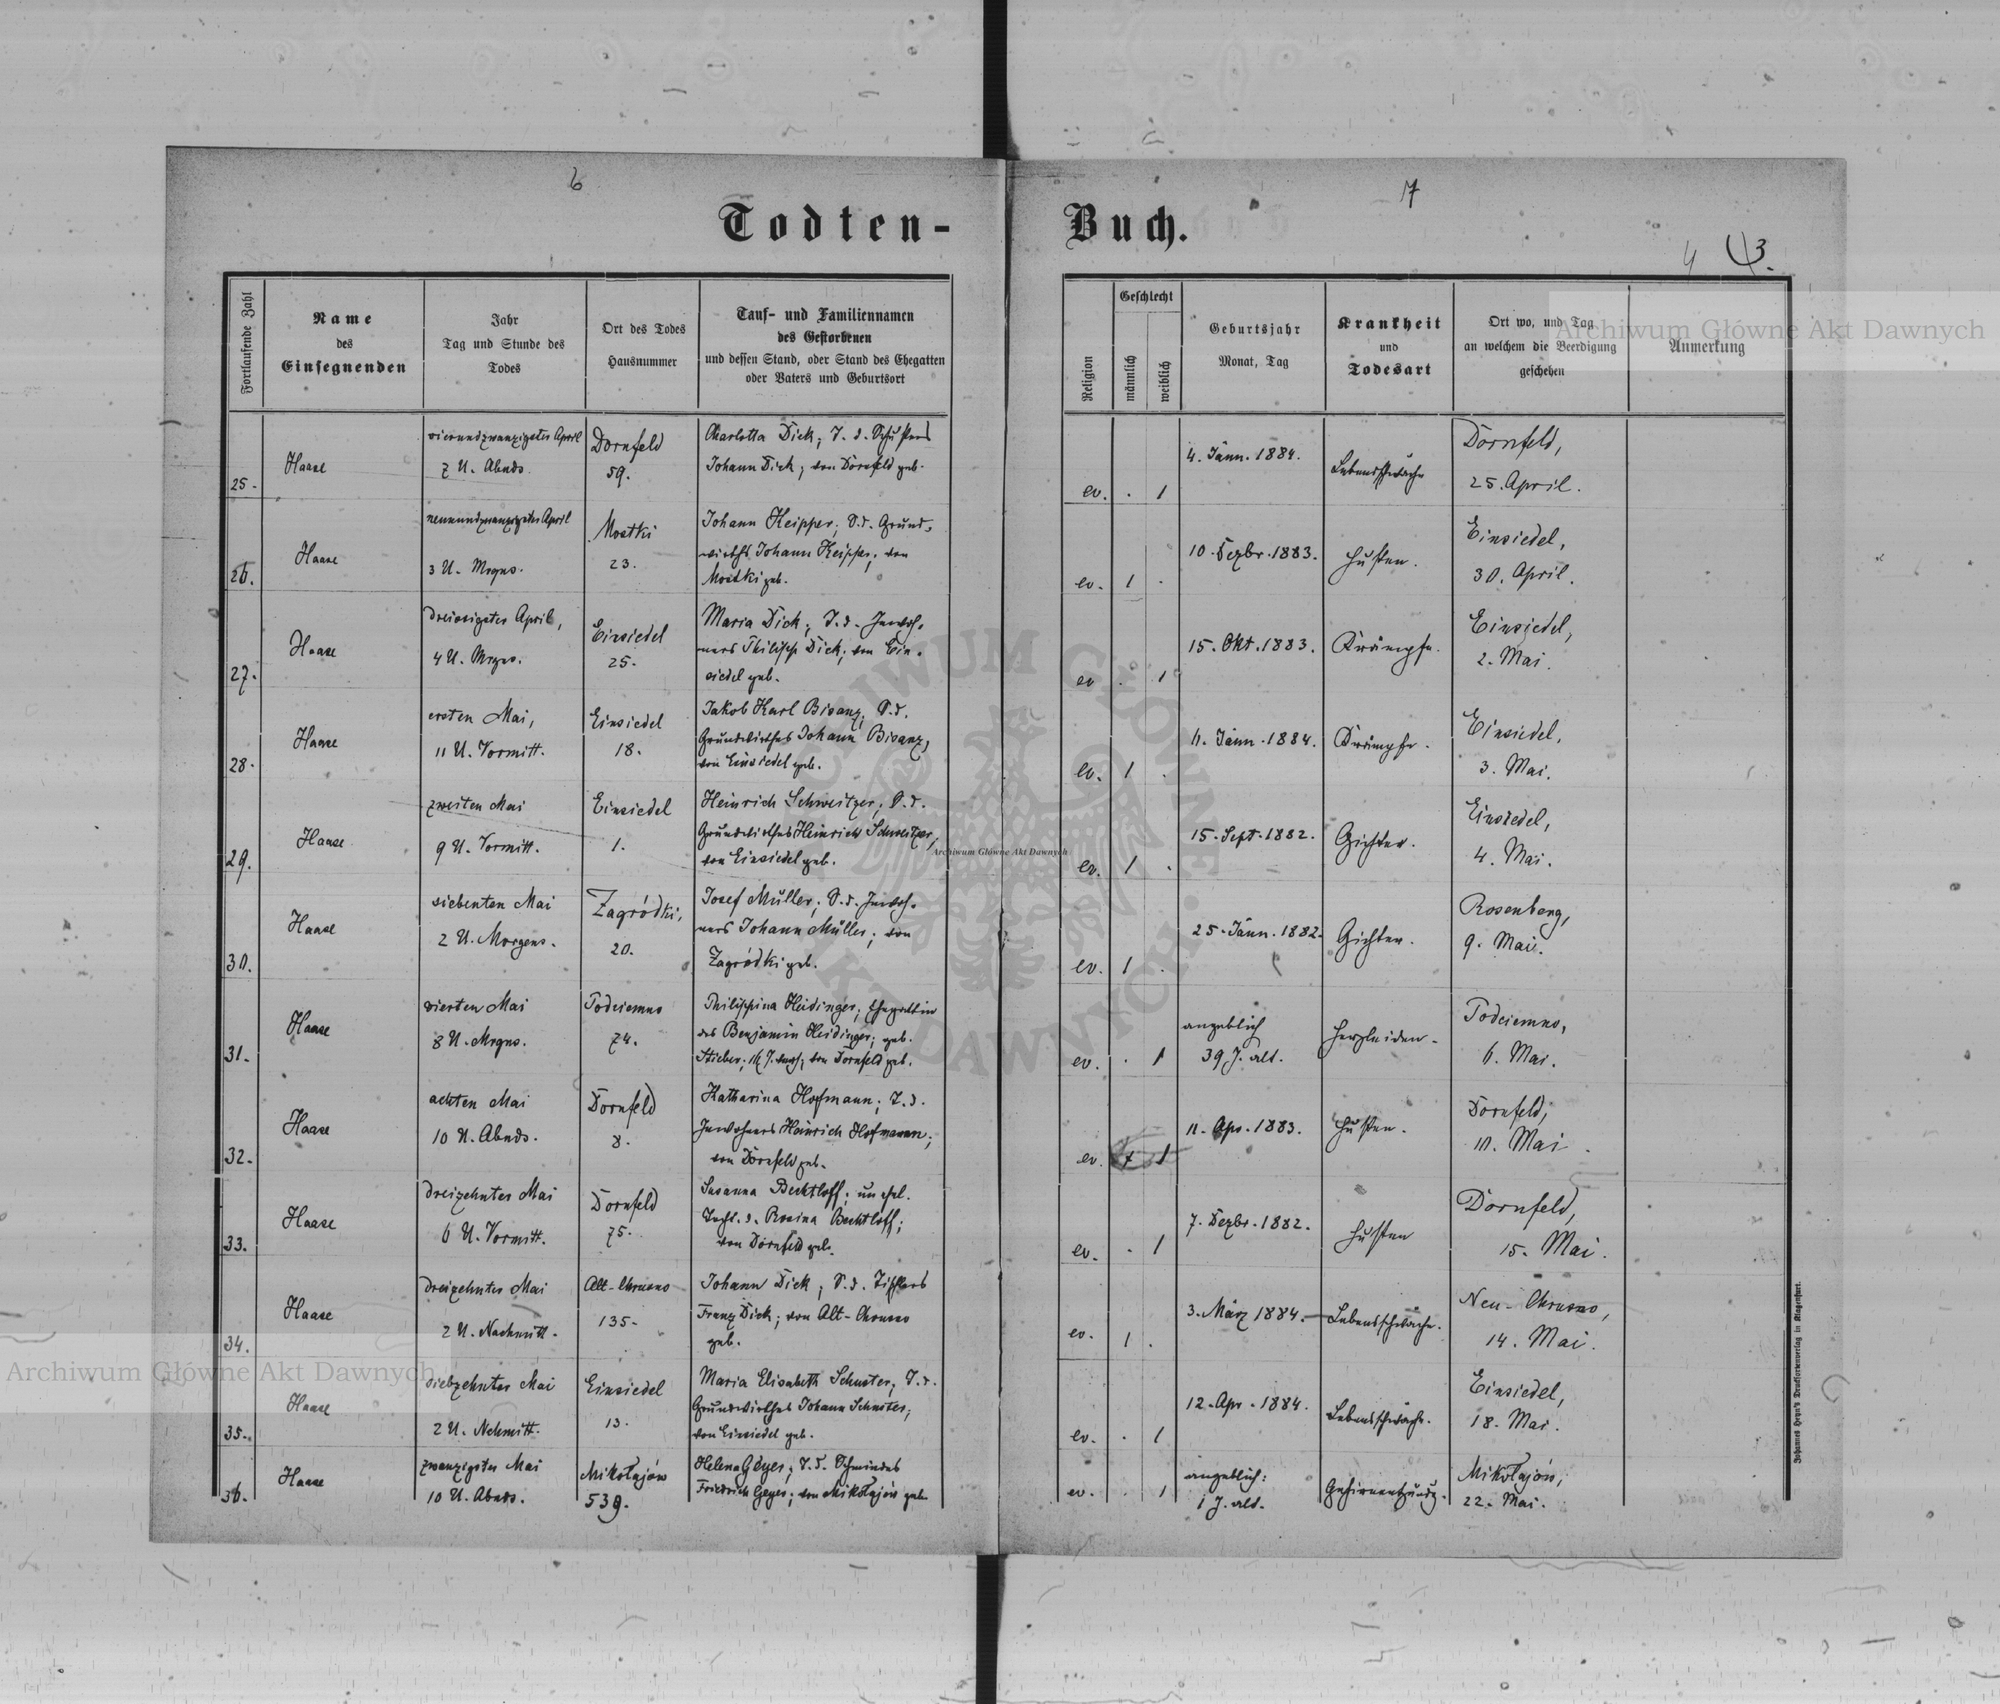 6
17
Todten-
Buch.
4 3.
Fortlaufende Zahl
Name
des
Einsegnenden
Jahr
Tag und Stunde des
Todes
Ort des Todes
Hausnummer
Tauf- und Familiennamen
des Gestorbenen
und dessen Stand, oder Stand des Ehegatten
oder Vaters und Geburtsort
Religion
Geschlecht
männlich
weiblich
Geburtsjahr
Monat, Tag
Krankheit
und
Todesart
Ort wo, und Tag
an welchem die Beerdigung
geschehen
Anmerkung
25.
Haase
vierundzwanzigster April
7 U. Abnds.
Dornfeld
59.
Charlotta Dick; T. d. Schusters
Johann Dick; von Dornfeld geb.
ev. . 1
4. Jänn. 1884.
Lebensschwäche
Dornfeld,
25. April.
26.
Haase
neunundzwanzigster April
3 U. Mrgns.
Mostki
23.
Johann Keipper; S. d. Grund-
wirths Johann Keipper; von
Mostki geb.
ev. 1 .
10. Dezbr. 1883.
Husten.
Einsiedel,
30. April.
27.
Haase
dreissigster April,
4 U. Mrgns.
Einsiedel
25.
Maria Dick; T. d. Inwoh-
ners Philipp Dick; von Ein-
siedel geb.
ev . 1
15. Okt. 1883.
Krämpfe.
Einsiedel,
2. Mai.
28.
Haase
ersten Mai,
11 U. Vormitt.
Einsiedel
18.
Jakob Karl Bisanz; S. d.
Grundwirthes Johann Bisanz,
von Einsiedel geb.
ev. 1 .
11. Jänn. 1884.
Krämpfe.
Einsiedel,
3. Mai.
29.
Haase
zweiten Mai
9 U. Vormitt.
Einsiedel
1.
Heinrich Schweitzer; S. d.
Grundwirthes Heinrich Schweitzer,
von Einsiedel geb.
ev. 1 .
15. Sept. 1882.
Gichter.
Einsiedel,
4. Mai.
30.
Haase
siebenten Mai
2 U. Morgens.
Zagródki,
20.
Josef Müller; S. d. Inwoh-
ners Johann Müller; von
Zagródki geb.
ev. 1 .
25. Jänn. 1882.
Gichter.
Rosenberg,
9. Mai.
31.
Haase
vierten Mai
8 U. Mrgns.
Podciemno
74.
Philippina Heidinger; Ehegattin
des Benjamin Heidinger; geb.
Stieber; von Dornfeld geb.
ev. . 1
angeblich
39 J. alt.
Herzleiden.
Podciemno,
6. Mai.
32.
Haase
achten Mai
10 U. Abnds.
Dornfeld
8.
Katharina Hofmann; T. d.
Inwohners Heinrich Hofmann;
von Dornfeld geb.
ev. 1
11. Apr. 1883.
Husten.
Dornfeld,
10. Mai.
33.
Haase
dreizehnter Mai
6 U. Vormitt.
Dornfeld
75.
Susanna Bechtloff; un ehel.
Tocht. d. Rosina Bechtloff;
von Dornfeld geb.
ev. . 1
7. Dezbr. 1882.
Husten
Dornfeld,
15. Mai.
34.
Haase
dreizehnter Mai
2 U. Nachmitt.
Alt-Chrusno
135.
Johann Dick; S. d. Tischlers
Franz Dick; von Alt-Chrusno
geb.
ev. 1 .
3. März 1884.
Lebensschwäche.
Neu-Chrusno,
14. Mai.
35.
Haase
siebzehnter Mai
2 U. Nchmitt.
Einsiedel
13.
Maria Elisabeth Schuster; T. d.
Grundwirthes Johann Schuster;
von Einsiedel geb.
ev. . 1
12. Apr. 1884.
Lebensschwäche.
Einsiedel,
18. Mai.
36.
Haase
zwanzigster Mai
10 U. Abnds.
Mikołajów
539.
Helena Geyer; T. d. Schmiedes
Friedrich Geyer; von Mikołajów geb.
ev. . 1
angeblich:
1 J. alt.
Gehirnentzündg.
Mikołajów,
22. Mai.
Johannes Heyn's Drucksortenverlag in Klagenfurt.
Archiwum Główne Akt Dawnych
Archiwum Główne Akt Dawnych
Archiwum Główne Akt Dawnych
ARCHIWUM GŁÓWNE AKT DAWNYCH